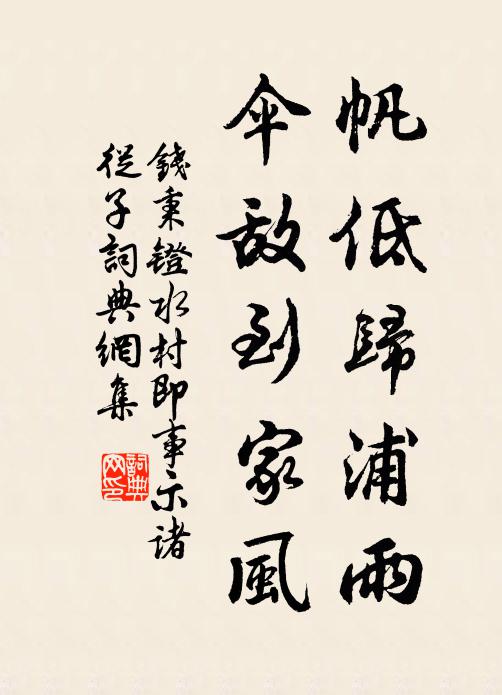 帆低歸浦雨
傘敵到家風
錢秉鐙水村即事示諸
從子詞典網集
詞典
网印